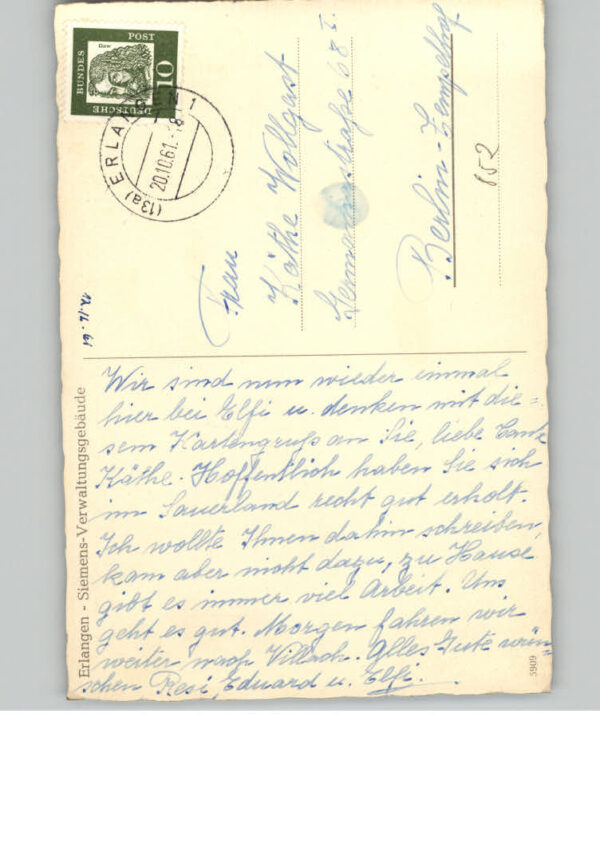 DEUTSCHE
BUNDES
POST
10
Dürer
(13a) ERLANGEN 1
20.10.61.-8
Frau
Käthe Wollgast
68 I.
Berlin-Tempelhof
852
17.10.61
Wir sind nun wieder einmal
hier bei Elfi u. denken mit die=
sem Kartengruß an Sie, liebe Tante
Käthe. Hoffentlich haben Sie sich
im Sauerland recht gut erholt.
Ich wollte Ihnen dahin schreiben,
kam aber nicht dazu, zu Hause
gibt es immer viel Arbeit. Uns
geht es gut. Morgen fahren wir
weiter nach Villach. Alles Gute wün=
schen Resi, Eduard u. Elfi.
Erlangen - Siemens-Verwaltungsgebäude
5909